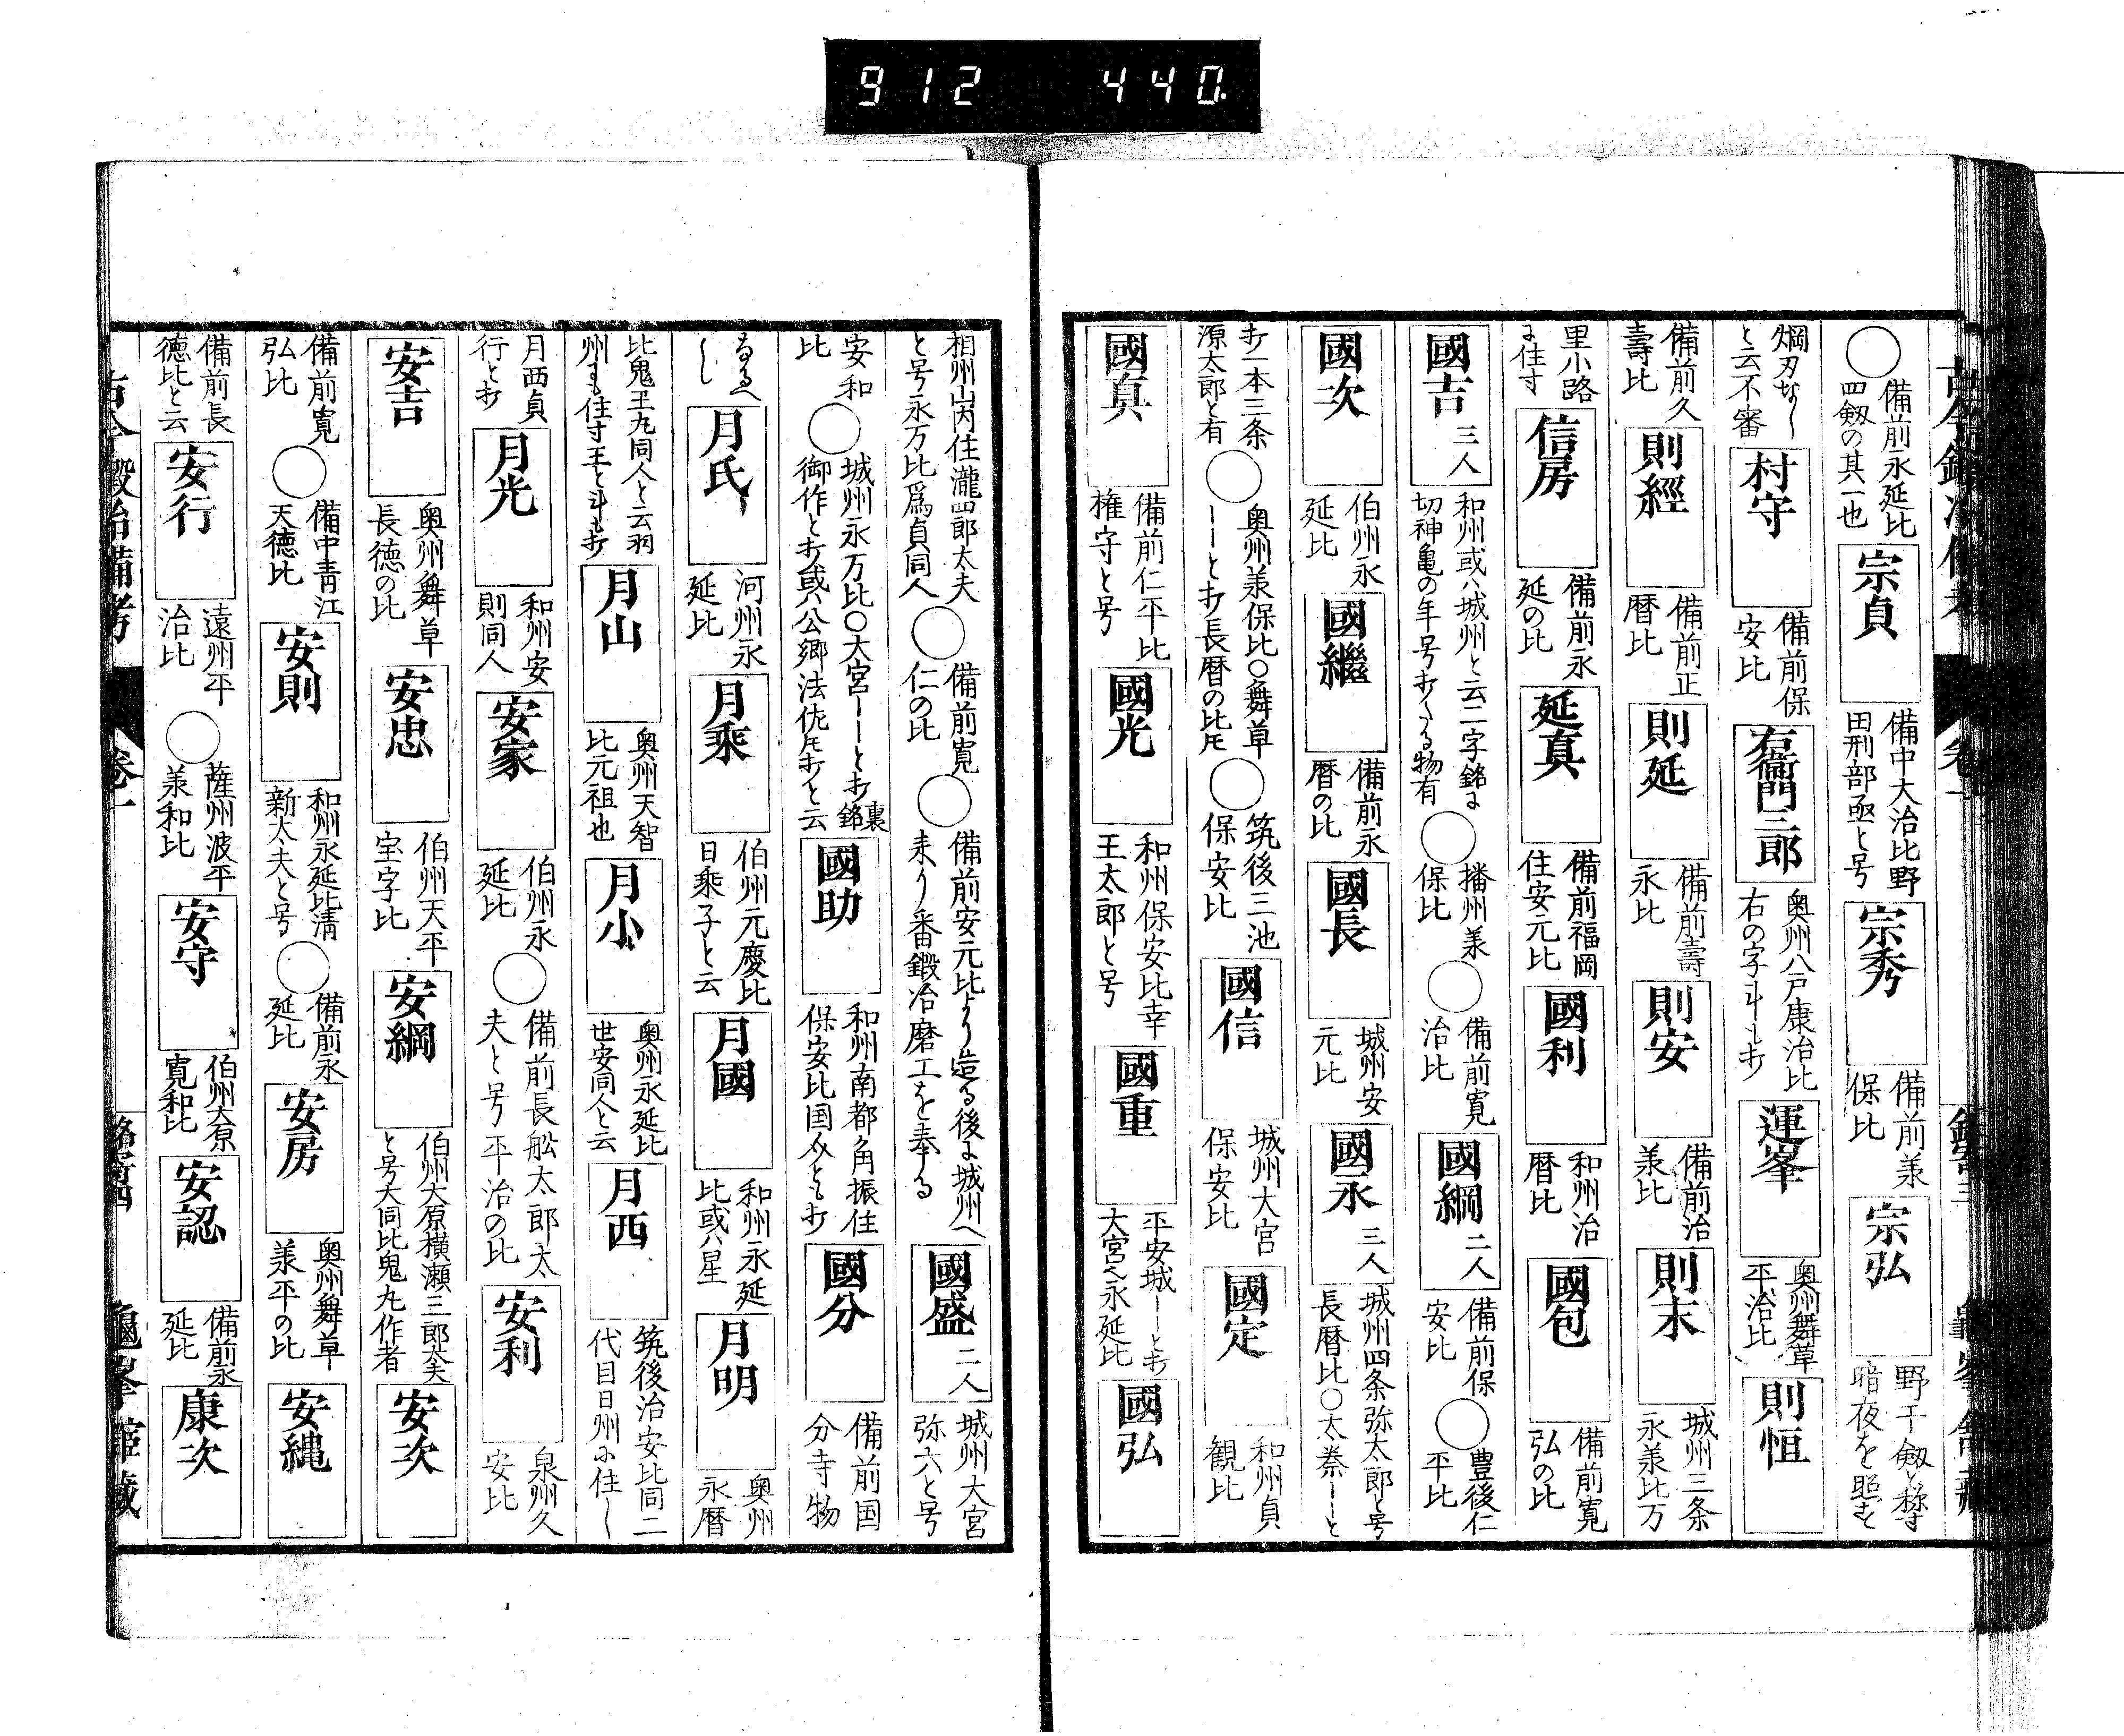 912 440.
○備前永延比四剱の其一也 宗貞 備中大治比野田刑部亟と号 宗秀 備前羕保比 宗弘 野干剱と称す暗夜を照す
焵刃なしと云不審 村守 備前保安比 右衛門三郎 奥州八戸康治比右の字斗も打 運峯 奥州舞草平治比 則恒
備前久壽比 則經 備前正暦比 則延 備前壽永比 則安 備前治羕比 則末 城州三条永羕比万
里小路に住す 信房 備前永延の比 延真 備前福岡住安元比 國利 和州治暦比 國包 備前寛弘の比
國吉 三人 和州或ハ城州と云二字銘に切神亀の年号打たる物有 ○播州羕保比 ○備前寛治比 國綱 二人 備前保安比 ○豊後仁平比
國次 伯州永延比 國繼 備前永暦の比 國長 城州安元比 國永 三人 城州四条弥太郎と号長暦比○太秦ーーと
打一本三条源太郎と有 ○奥州羕保比○舞草ーーと打長暦の比に ○筑後三池保安比 國信 城州大宮保安比 國定 和州貞観比
國真 備前仁平比権守と号 國光 和州保安比幸王太郎と号 國重 平安城ーーと打大宮也永延比 國弘
相州山内住瀧四郎太夫と号永万比爲貞同人 ○備前寛仁の比 ○備前安元比より造る後に城州へ来り番鍛冶磨工を奉る 國盛 二人 城州大宮弥六と号
安和比 ○城州永万比○大宮ーーと打裏銘御作と打或ハ公郷法佐に打と云 國助 和州南都角振住保安比国次とも打 國分 備前国分寺物
なるへし 月氏 河州永延比 月乘 伯州元慶比日乗子と云 月國 和州永延比或ハ星 月明 奥州永暦
比鬼王丸同人と云羽州にも住す王と斗も打 月山 奥州天智比元祖也 月小 奥州永延比世安同人と云 月西 筑後治安比同二代目日州に住し
月西貞行と打 月光 和州安則同人 安家 伯州永延比 ○備前長舩太郎太夫と号平治の比 安利 泉州久安比
安吉 奥州舞草長徳の比 安忠 伯州天平宝字比 安綱 伯州大原横瀬三郎太夫と号大同比鬼丸作者 安次
備前寛弘比 ○備中青江天徳比 安則 和州永延比清新太夫と号 ○備前永延比 安房 奥州舞草羕平の比 安縄
備前長徳比と云 安行 遠州平治比 ○薩州波平羕和比 安守 伯州大原寛和比 安認 備前永延比 康次
古今鍛冶備考 巻一 銘寄四 龜峯館藏